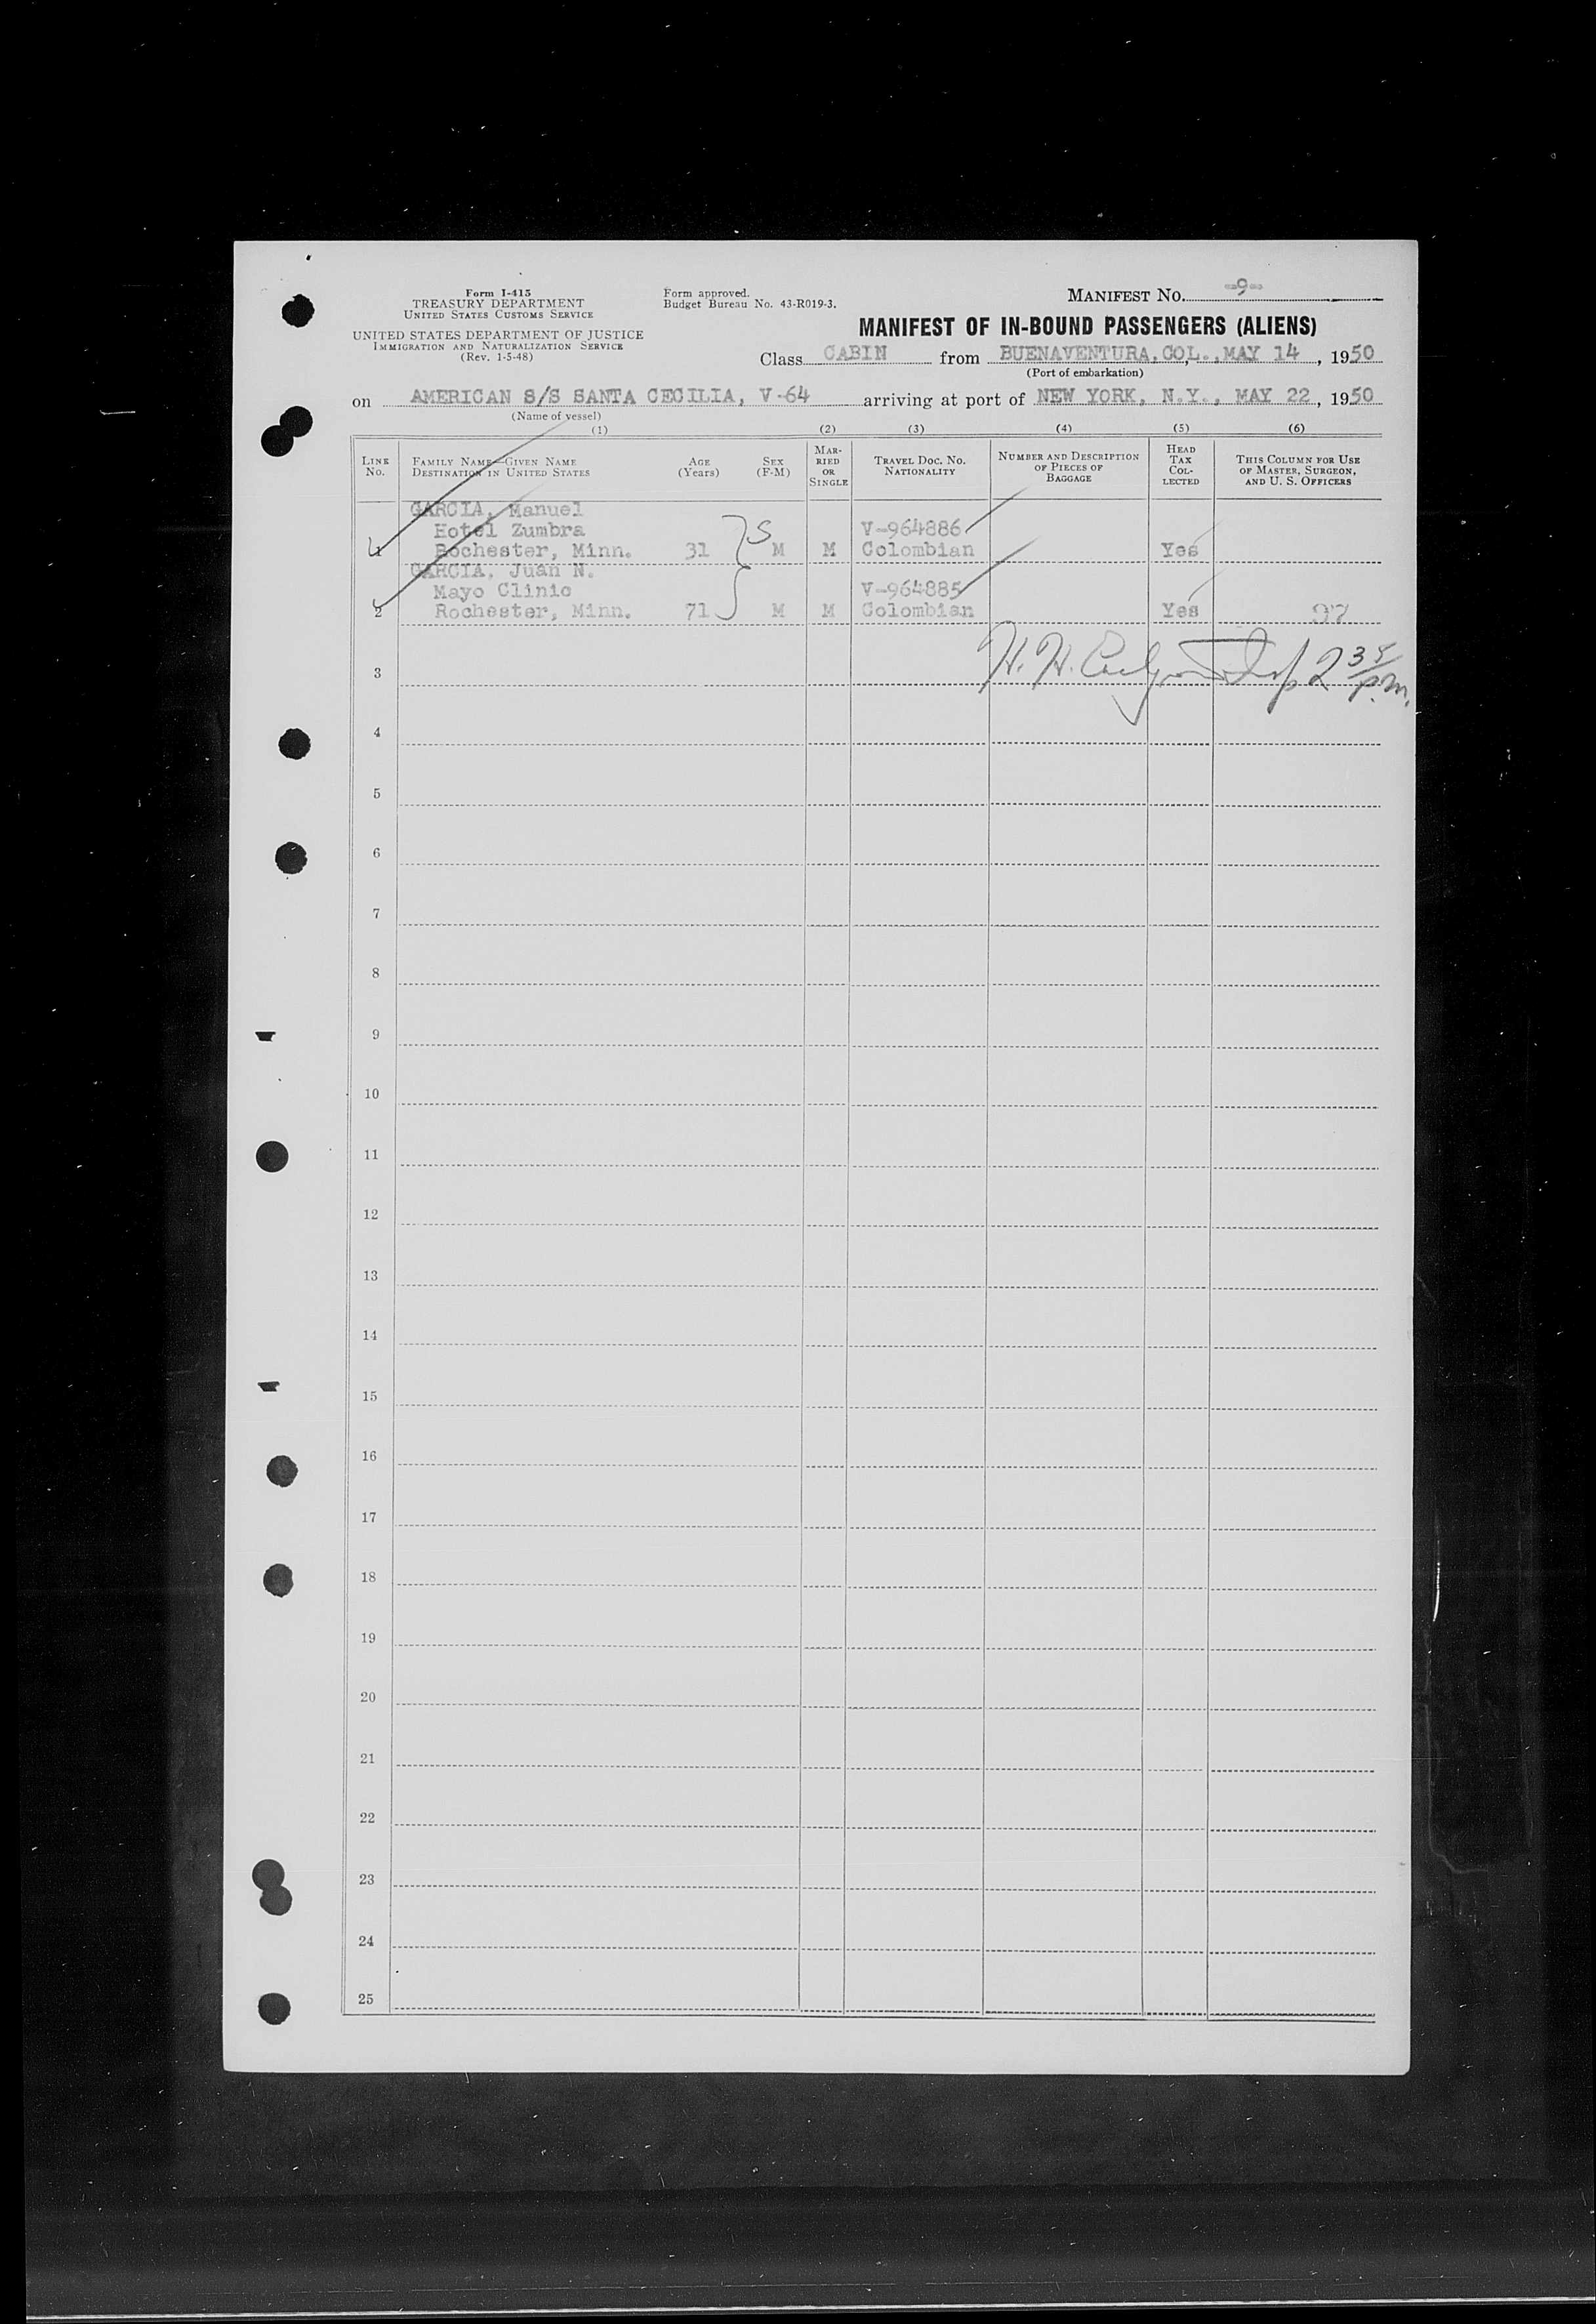 Form I-415
TREASURY DEPARTMENT
UNITED STATES CUSTOMS SERVICE
UNITED STATES DEPARTMENT OF JUSTICE
IMMIGRATION AND NATURALIZATION SERVICE
(Rev. 1-5-48)
Form approved.
Budget Bureau No. 43-R019-3.
MANIFEST NO. -9-
MANIFEST OF IN-BOUND PASSENGERS (ALIENS)
Class CABIN from BUENAVENTURA, COL., MAY 14, 1950
(Port of embarkation)
on AMERICAN S/S SANTA CECILIA, V-64 arriving at port of NEW YORK, N.Y., MAY 22, 1950
(Name of vessel)
(1) (2) (3) (4) (5) (6)
LINE NO. FAMILY NAME—GIVEN NAME DESTINATION IN UNITED STATES AGE (Years) SEX (F-M) MARRIED OR SINGLE TRAVEL DOC. NO. NATIONALITY NUMBER AND DESCRIPTION OF PIECES OF BAGGAGE HEAD TAX COLLECTED THIS COLUMN FOR USE OF MASTER, SURGEON, AND U. S. OFFICERS
GARCIA, Manuel
Hotel Zumbra S V-964886
1 Rochester, Minn. 31 M M Colombian Yes
GARCIA, Juan N.
Mayo Clinic V-964885
2 Rochester, Minn. 71 M M Colombian Yes
H. H. 2 35 p.m.
3
4
5
6
7
8
9
10
11
12
13
14
15
16
17
18
19
20
21
22
23
24
25